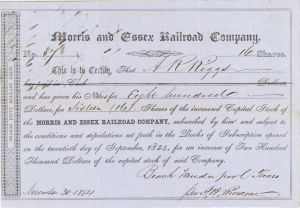 Morris and Essex Railroad Company.
No. 16 Shares.
This is to Certify, That A R Riggs
Dollars
and has given his Notes for Eight hundred
Dollars, for Sixteen (16) Shares of the increased Capital Stock of
the MORRIS AND ESSEX RAILROAD COMPANY, subscribed by him and subject to
the conditions and stipulations set forth in the Books of Subscription opened
on the twentieth day of September, 1854, for an increase of Two Hundred
Thousand Dollars of the capital stock of said Company.
November 20 1854